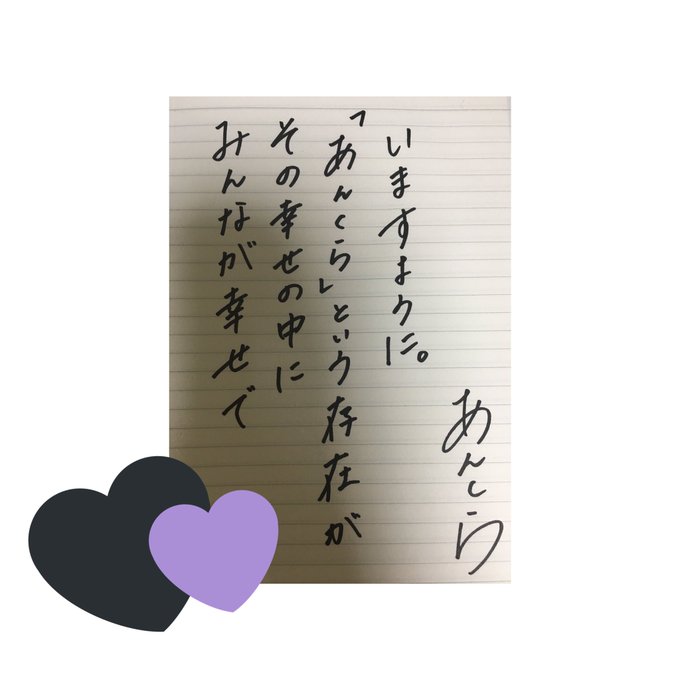 みんなが幸せで
その幸せの中に
「あんくら」という存在が
いますように。
あんくら